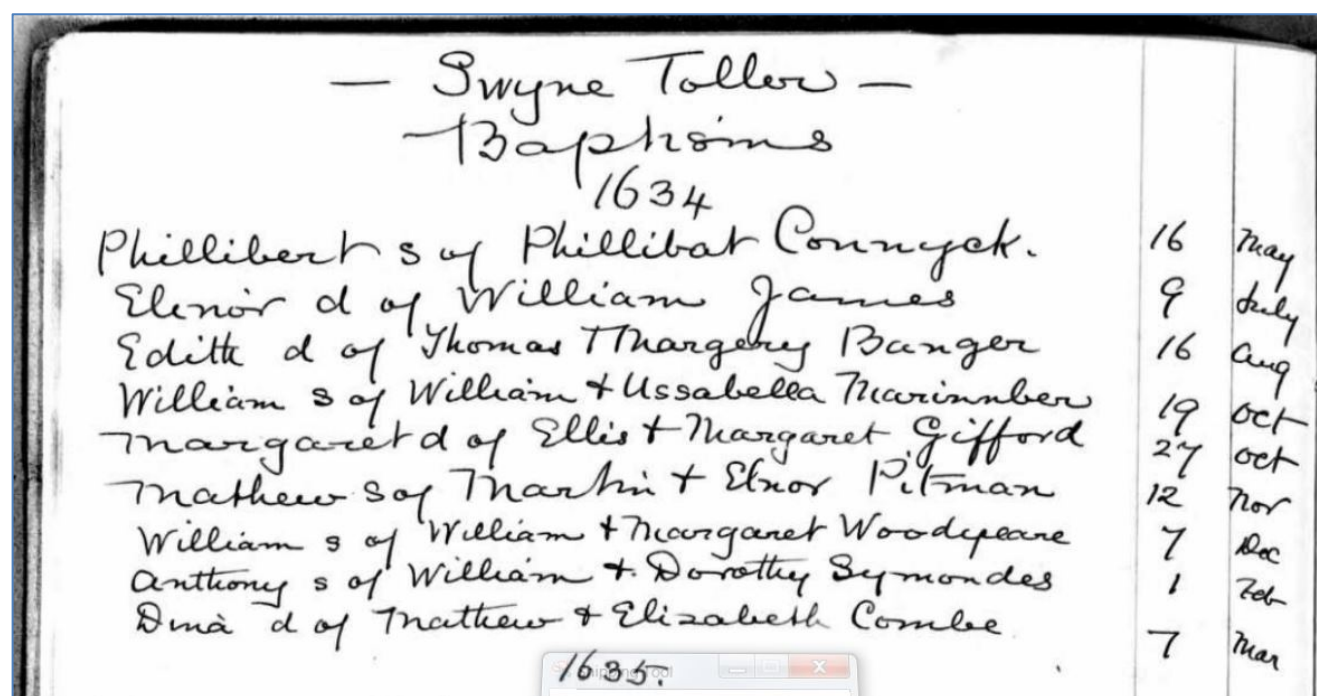 — Swyne Toller —
Baptisms
1634
Phillibert s of Phillibat Connyck. 16 May
Elinor d of William James 9 July
Edith d of Thomas + Margery Banger 16 Aug
William s of William + Ussabella Marinnber 19 Oct
Margaret d of Ellis + Margaret Gifford 27 Oct
Mathew s of Martin + Elnor Pitman 12 Nov
William s of William + Margaret Woodypeare 7 Dec
Anthony s of William + Dorothy Symondes 1 Feb
Dina d of Mathew + Elizabeth Combe 7 Mar
1635.